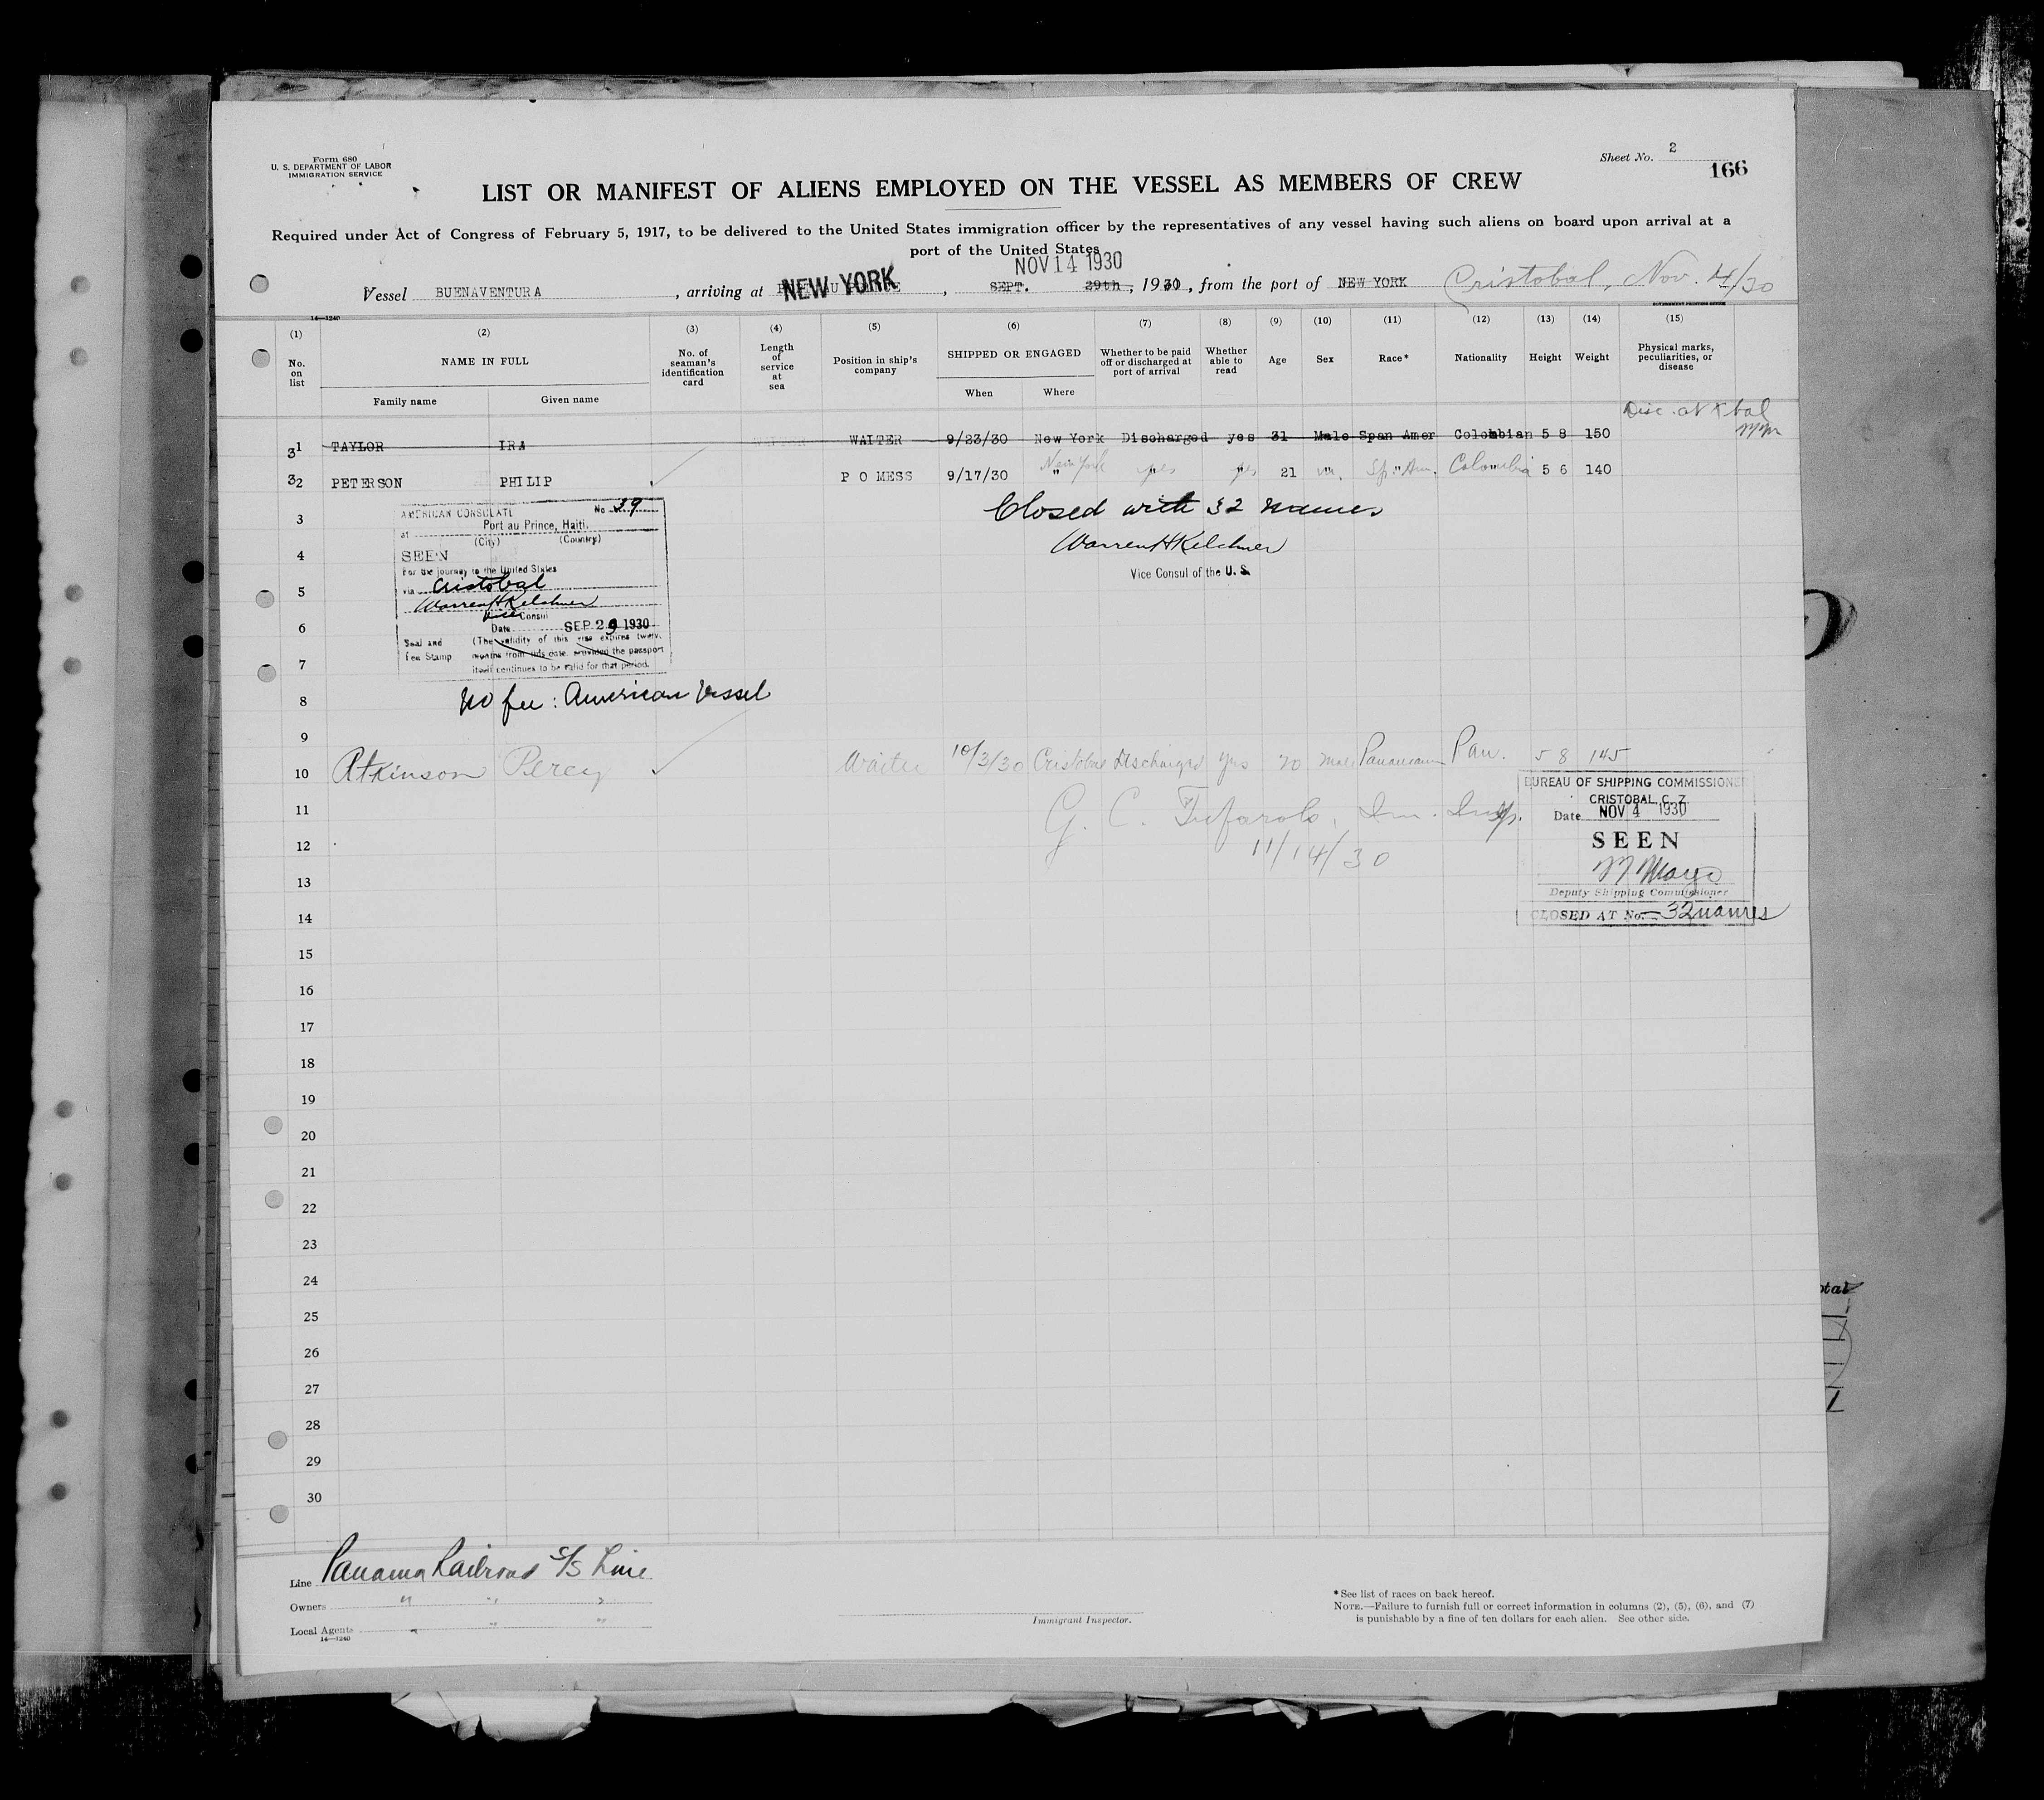 Form 680
U. S. DEPARTMENT OF LABOR
IMMIGRATION SERVICE
Sheet No. 2
166
LIST OR MANIFEST OF ALIENS EMPLOYED ON THE VESSEL AS MEMBERS OF CREW
Required under Act of Congress of February 5, 1917, to be delivered to the United States immigration officer by the representatives of any vessel having such aliens on board upon arrival at a
port of the United States
NOV 14 1930
Vessel BUENAVENTURA, arriving at NEW YORK, SEPT. 29th, 1930, from the port of NEW YORK Cristobal, Nov. 4/30
14—1240
GOVERNMENT PRINTING OFFICE
(1) (2) (3) (4) (5) (6) (7) (8) (9) (10) (11) (12) (13) (14) (15)
No. on list NAME IN FULL No. of seaman's identification card Length of service at sea Position in ship's company SHIPPED OR ENGAGED Whether to be paid off or discharged at port of arrival Whether able to read Age Sex Race* Nationality Height Weight Physical marks, peculiarities, or disease
Family name Given name When Where
Disc. at Xbal
31 TAYLOR IRA WAITER 9/23/30 New York Discharged yes 31 Male Span Amer Colombian 5 8 150
32 PETERSON PHILIP P O MESS 9/17/30 New York yes yes 21 m. Sp. Am. Colombia 5 6 140
AMERICAN CONSULATE No 39
3
Closed with 32 names
at Port au Prince, Haiti.
(City) (Country)
4
Warren H Kelchner
SEEN
For the journey to the United States
Vice Consul of the U. S.
5
via Cristobal
Warren H Kelchner
Vice Consul
6
Date SEP 29 1930
Seal and Fee Stamp
(The validity of this visa expires twelve
months from this date, provided the passport
7
itself continues to be valid for that period.
8
No fee: American Vessel
9
10 Atkinson Percy Waiter 10/3/30 Cristobal Discharged yes 20 Male Panamanian Pan. 5 8 145
BUREAU OF SHIPPING COMMISSIONER
CRISTOBAL, C. Z.
11
G. C. Tufarolo, Im. Insp.
Date NOV 4 1930
12
11/14/30
SEEN
M Mayo
13
Deputy Shipping Commissioner
14
CLOSED AT No. 32 names
15
16
17
18
19
20
21
22
23
24
25
26
27
28
29
30
Line Panama Railroad S/S Line
Owners " " "
Local Agents " " "
14—1240
Immigrant Inspector.
*See list of races on back hereof.
NOTE.—Failure to furnish full or correct information in columns (2), (5), (6), and (7)
is punishable by a fine of ten dollars for each alien. See other side.
otal